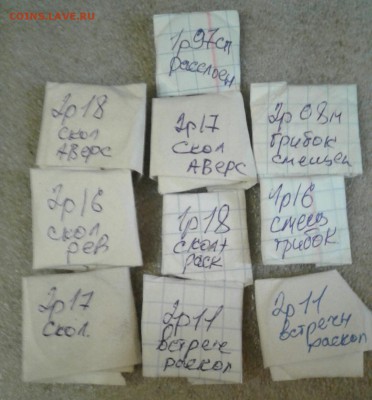 COINS.LAVE.RU
1р 97 сп
расслоен
2р 18
скол
Аверс
2р 17
скол
Аверс
2р 08м
грибок
смещен
2р 16
скол
рев
1р 18
скол+
раск
1р 16
смещ
грибок
2р 17
скол.
2р 11
встреч
раскол
2р 11
встречн
раскол